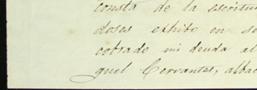 consta de la escritu
doses exhito en se
cobrade mi deuda al
guel Cervantes, albac